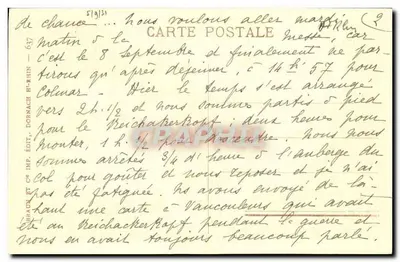 5/9/31
de chance... Nous voulons aller mardi
matin à la messe, car
CARTE POSTALE
c'est le 8 Septembre et finalement ne par-
tirons qu'après déjeuner, à 14h 57 pour
Colmar. - Hier le temps s'est arrangé
vers 2h. 1/2 et nous sommes partis à pied
pour le Reichackerkopf : deux heures pour
monter, 1 h. 1/2 pour descendre. Nous nous
sommes arrêtés 3/4 d'heure à l'auberge du
col pour goûter et nous reposer et je n'ai
pas été fatiguée. Ns avons envoyé de là-
haut une carte à Vaucouleurs qui avait
été au Reichackerkopf pendant la guerre et
nous en avait toujours beaucoup parlé.
BRAUN ET CIE IMP. ÉDIT., DORNACH Ht-RHIN